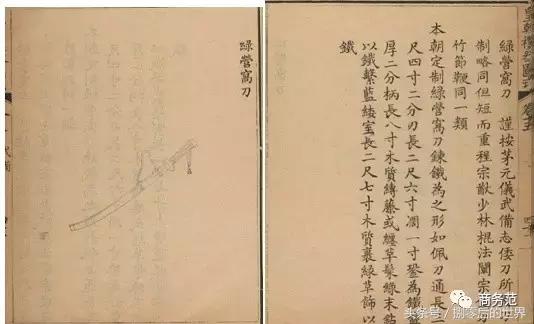 皇朝禮器圖式
綠營窩刀 謹按茅元儀武備志倭刀所
制略同但短而重程宗猷少林棍法闡宗
竹節鞭同一類
本朝定制綠營窩刀鍊鐵為之形如佩刀通長
尺四寸二分刃長二尺六寸闊一寸銎為鐵
厚二分柄長八寸木質縳籐或纏草髹綠末
以鐵繫藍緌室長二尺七寸木質裹綠草飾以
鐵
綠營窩刀
商务范
头条号 / 捌零后的世界